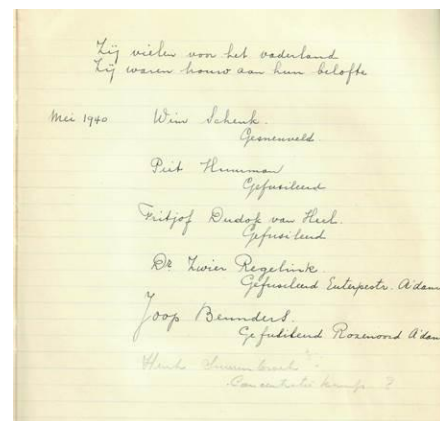 Zij vielen voor het vaderland
Zij waren trouw aan hun belofte
Mei 1940 Wim Schenk.
Gesneuveld.
Piet Huurman
Gefusileerd
Fritjof Dudok van Heel.
Gefusileerd
Dr. Zwier Regelink.
Gefusileerd Euterpestr. A'dam
Joop Beunders.
Gefusileerd Rozenoord A'dam
Henk
Concentratie kamp ?